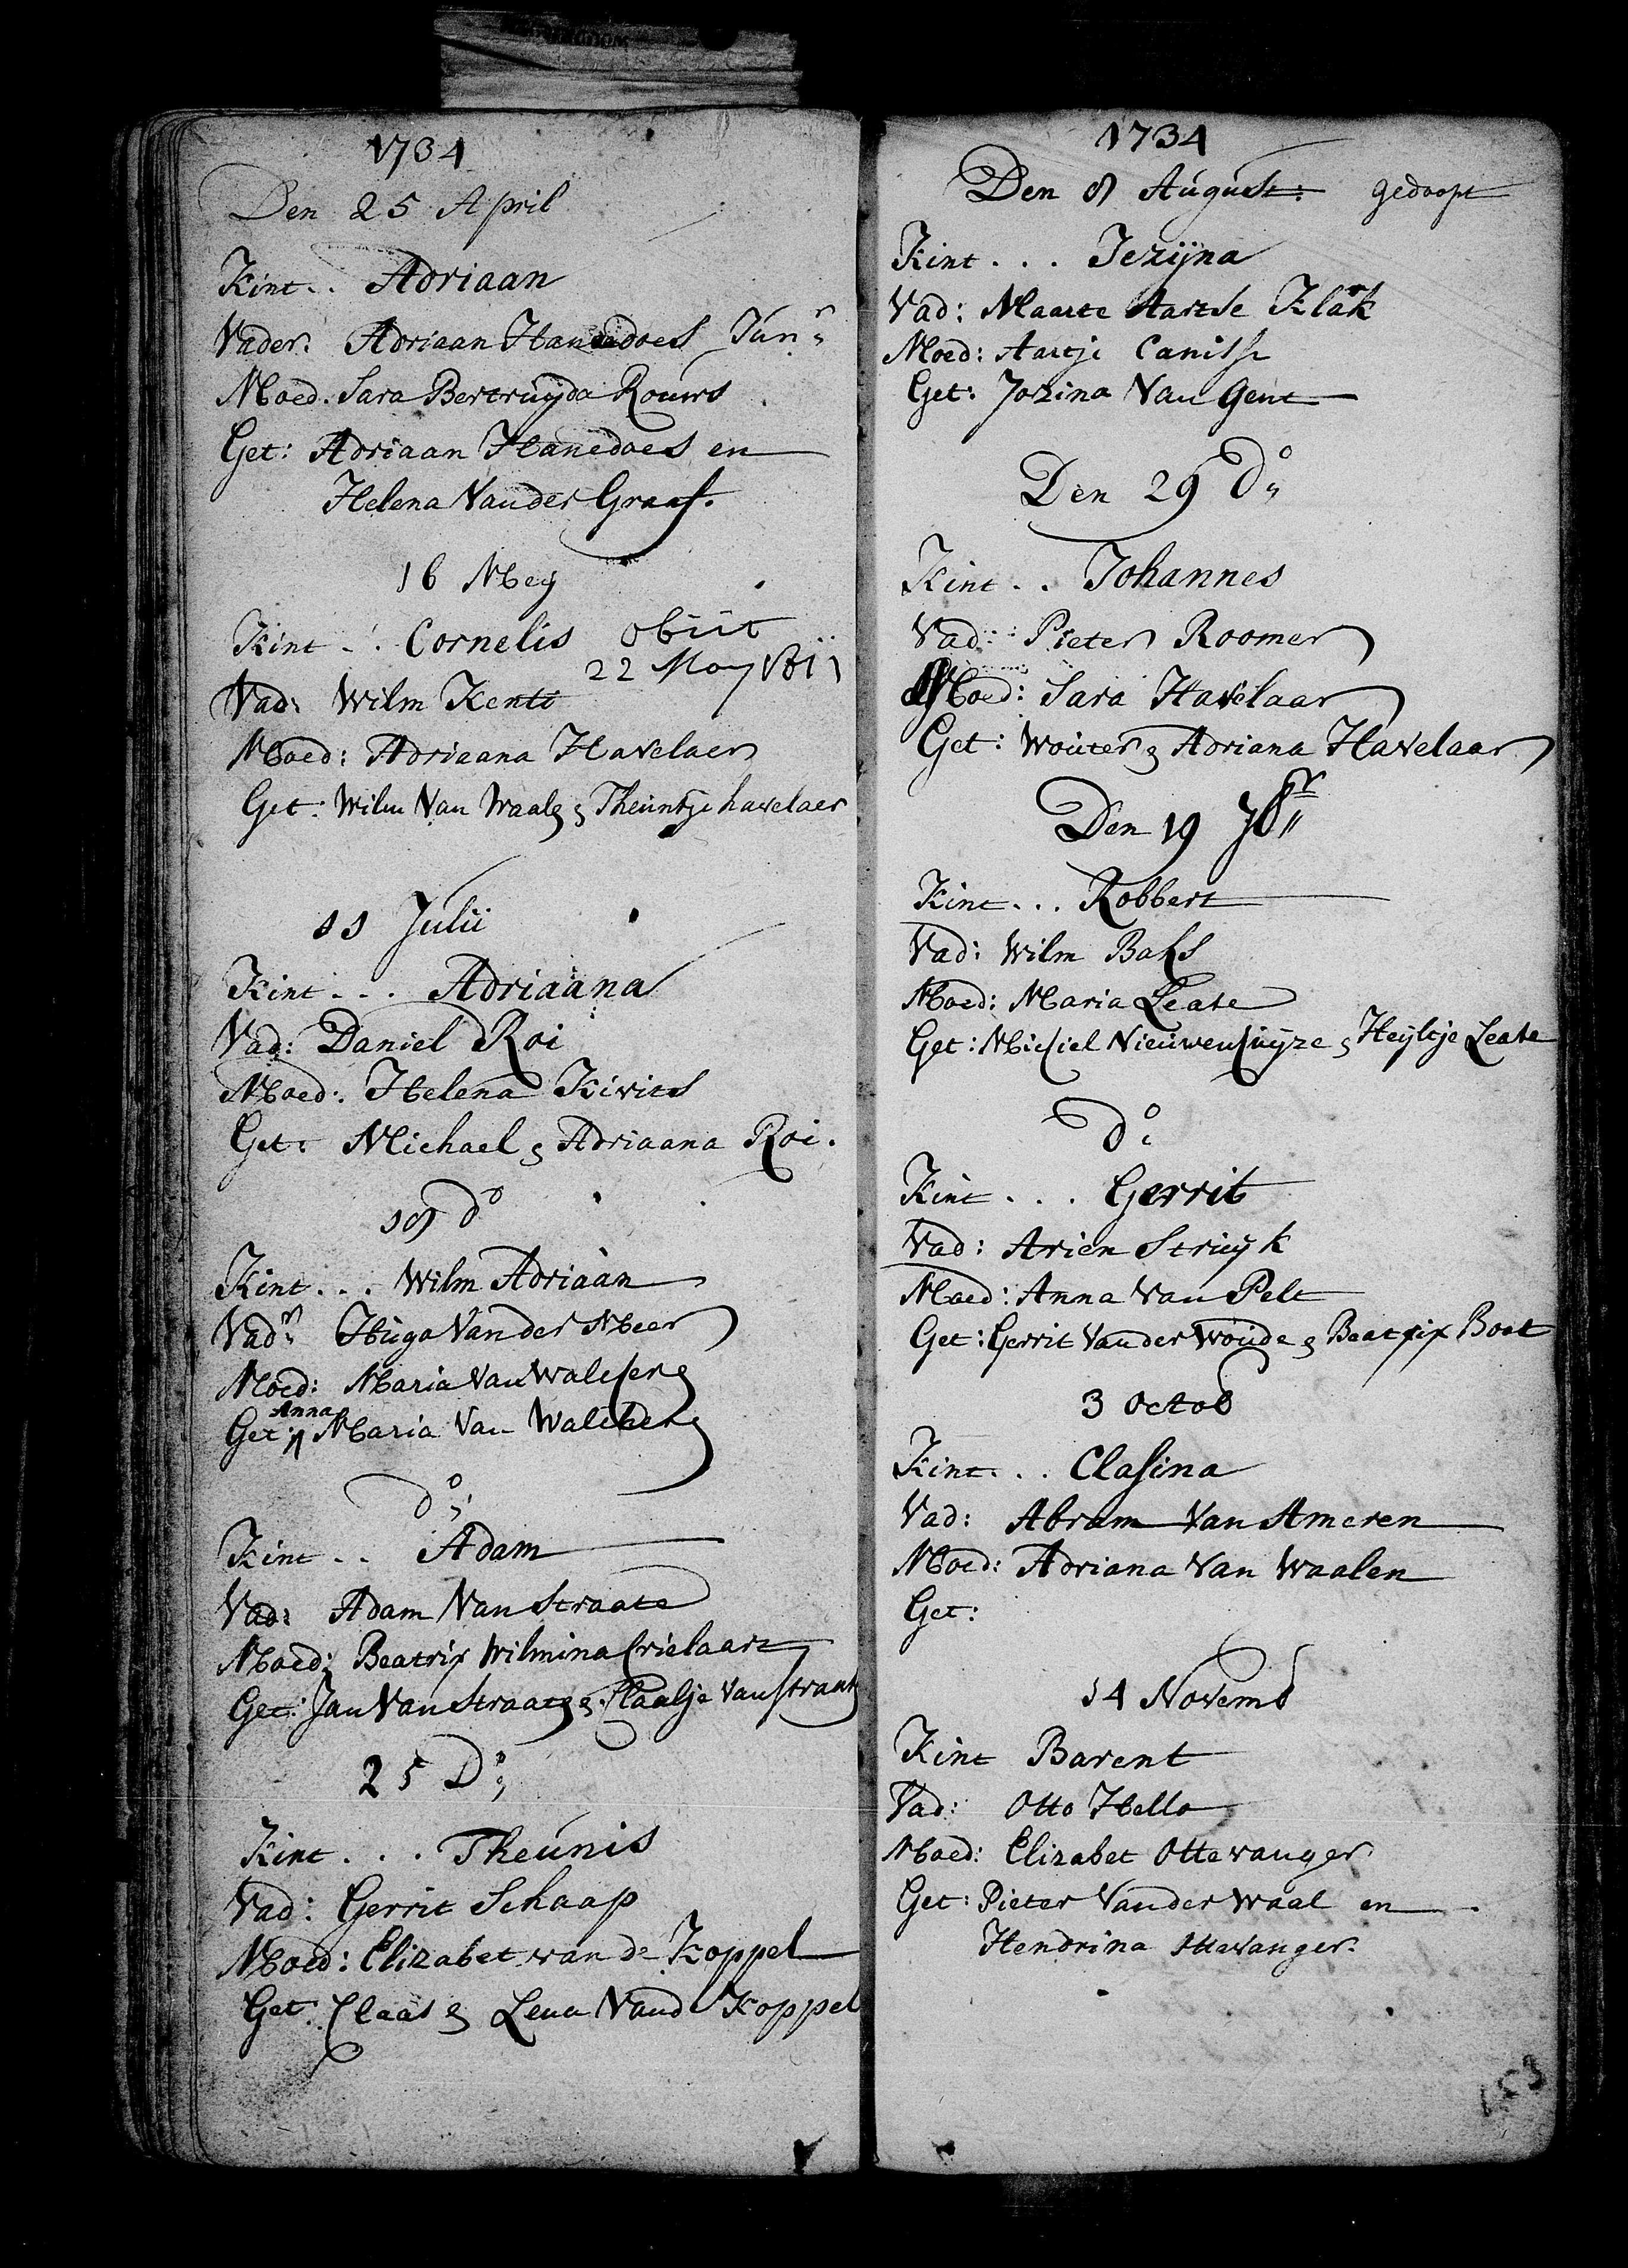 1734
Den 25 April
Kint .. Adriaan
Vader: Adriaan Hanedoes Jun:r
Moed: Sara Bertruyda Rouws
Get: Adriaan Hanedoes en
Helena Vander Graaf.
16 Mey
Kint .. Cornelis obiit
22 May 1811
Vad: Wilm Kentt
Moed: Adriaana Havelaer
Get: Wilm Van Waale & Theuntje havelaer
11 Julii
Kint ... Adriaana
Vad: Daniel Roi
Moed: Helena Kivits
Get: Michael & Adriaana Roi.
19 do
Kint ... Wilm Adriaan
Vadr: Hugo Vander Meer
Moed: Maria Van Walcherg
Anna
Get: Maria Van Walcherg
do;
Kint .. Adam
Vad: Adam Van Straate
Moed: Beatrix Wilmina Crielaart
Get: Jan Van Straate & Claasje Van Straate
25 Do;
Kint ... Theunis
Vad: Gerrit Schaap
Moed: Elizabet van de Koppel
Get: Claas & Lena Vand Koppel
1734
Den 8 August: gedoopt
Kint ... Jezijna
Vad: Maarte Aartse Klark
Moed: Aartje Canisse
Get: Jozina Van Gent
Den 29 do;
Kint .. Johannes
Vad: Pieter Roomer
Moed: Sara Havelaar
Get: Wouter & Adriana Havelaar
Den 19 7br
Kint ... Robbert
Vad: Wilm Bahs
Moed: Maria Leate
Get: Michiel Nieuwenhuyze & Heyltje Leate
do:
Kint ... Gerrit
Vad: Arien Struyk
Moed: Anna Van Pelt
Get: Gerrit Vander Woude & Beatrix Boet
3 Octob
Kint ... Clasina
Vad: Abram Van Ameren
Moed: Adriana Van Waalen
Get:
14 Novemb
Kint Barent
Vad: Otto Hello
Moed: Elizabet Ottevanger
Get: Pieter Vander Waal en
Hendrina Ottevanger.
153